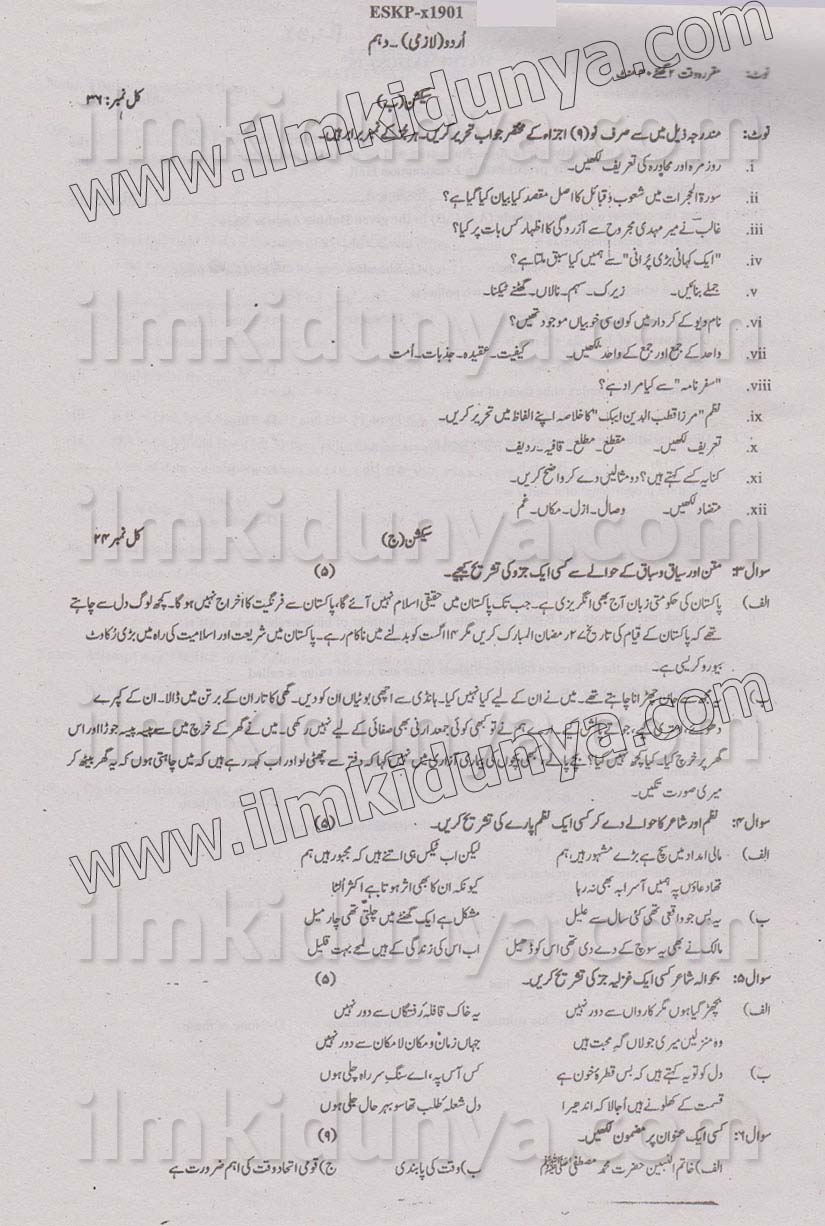 ESKP-x1901
اُردو (لازمی)۔ دہم
نوٹ: مقررہ وقت ۲ گھنٹے
سیکشن (ب) کل نمبر: ۳۶
نوٹ: مندرجہ ذیل میں سے صرف نو (۹) اجزاء کے مختصر جواب تحریر کریں۔ ہر جز کے نمبر برابر ہیں۔
i. روزمرہ اور محاورہ کی تعریف لکھیں۔
ii. سورۃ الحجرات میں شعوب و قبائل کا اصل مقصد کیا بیان کیا گیا ہے؟
iii. غالب نے میر مہدی مجروح سے آزردگی کا اظہار کس بات پر کیا؟
iv. "ایک کہانی بڑی پُرانی" سے ہمیں کیا سبق ملتا ہے؟
v. جملے بنائیں۔ زیرک۔ سہم۔ نالاں۔ گھٹنے ٹیکنا۔
vi. نام دیو کے کردار میں کون سی خوبیاں موجود تھیں؟
vii. واحد کے جمع اور جمع کے واحد لکھیں۔ کیفیت۔ عقیدہ۔ جذبات۔ اُمت
viii. "سفر نامہ" سے کیا مراد ہے؟
ix. نظم "مرزا قطب الدین ایبک" کا خلاصہ اپنے الفاظ میں تحریر کریں۔
x. تعریف لکھیں۔ مقطع۔ مطلع۔ قافیہ۔ ردیف
xi. کنایہ کسے کہتے ہیں؟ دو مثالیں دے کر واضح کریں۔
xii. متضاد لکھیں۔ وصال۔ ازل۔ مکاں۔ غم
سیکشن (ج) کل نمبر ۲۴
سوال ۳: متن اور سیاق و سباق کے حوالے سے کسی ایک جزو کی تشریح کیجیے۔ (۵)
الف) پاکستان کی حکومتی زبان آج بھی انگریزی ہے۔ جب تک پاکستان میں حقیقی اسلام نہیں آئے گا، پاکستان سے فرنگیت کا اخراج نہیں ہوگا۔ کچھ لوگ دل سے چاہتے
تھے کہ پاکستان کے قیام کی تاریخ ۲۷ رمضان المبارک کریں مگر ۱۴ اگست کو بدلنے میں ناکام رہے۔ پاکستان میں شریعت اور اسلامیت کی راہ میں بڑی رکاوٹ
بیوروکریسی ہے۔
ب) یہ مجھ سے جان چھڑانا چاہتے تھے۔ میں نے ان کے لیے کیا نہیں کیا۔ ہانڈی سے اچھی بوٹیاں ان کو دیں۔ گھی کا تار ان کے برتن میں ڈالا۔ ان کے کپڑے
دھوئے، استری کیے، جوتے پالش کیے۔ ہم نے تو کبھی کوئی جمعدارنی بھی صفائی کے لیے نہیں رکھی۔ میں نے گھر کے خرچ میں سے پیسہ پیسہ جوڑا اور اس
گھر پر خرچ کیا۔ کیا کچھ نہیں کیا؟ بچے پالے، کبھی بچوں کی بیماری آزاری میں نہیں کہا کہ دفتر سے چھٹی لو اور اب کہہ رہے ہیں کہ میں چاہتی ہوں کہ یہ گھر بیٹھ کر
میری صورت تکیں۔
سوال ۴: نظم اور شاعر کا حوالے دے کر کسی ایک نظم پارے کی تشریح کریں۔ (۵)
الف) مالی امداد میں سچ ہے بڑے مشہور ہیں ہم لیکن اب ٹیکس ہی اتنے ہیں کہ مجبور ہیں ہم
تھا دعاؤں پہ ہمیں آسرا یہ بھی نہ رہا کیونکہ ان کا بھی اثر ہوتا ہے اکثر اُلٹا
ب) یہ بس جو واقعی تھی کئی سال سے علیل مشکل ہے ایک گھنٹے میں چلتی تھی چار میل
مالک نے بھی یہ سوچ کے دے دی تھی اس کو ڈھیل اب اس کی زندگی کے ہیں لمحے بہت قلیل
سوال ۵: بحوالہ شاعر کسی ایک غزلیہ جز کی تشریح کریں۔ (۵)
الف) بچھڑ گیا ہوں مگر کارواں سے دور نہیں یہ خاک قافلۂ رفتگاں سے دور نہیں
وہ منزلیں میری جولاں گہِ محبت ہیں جہاں زمان و مکان لامکان سے دور نہیں
ب) دل کو تو یہ کہتے ہیں کہ بس قطرۂ خون ہے کس آس پہ، اے سنگِ سرِ راہ چلی ہوں
قسمت کے کھلونے ہیں اُجالا کہ اندھیرا دل شعلہ طلب تھا سو بہر حال جلی ہوں
سوال ۶: کسی ایک عنوان پر مضمون لکھیں۔ (۹)
الف) خاتم النبیین حضرت محمد مصطفیٰ ﷺ ب) وقت کی پابندی ج) قومی اتحاد وقت کی اہم ضرورت ہے
www.ilmkidunya.com
ilmkidunya.com
ilmkidunya.com
www.ilmkidunya.com
ilmkidunya.com
ilmkidunya.com
ilmkidunya.com